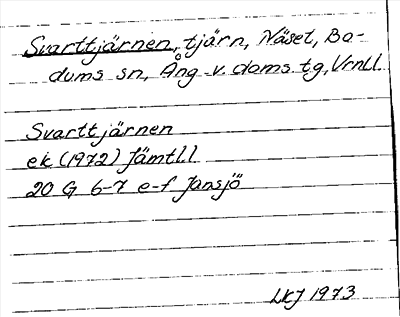 Svarttjärnen, tjärn, Näset, Bo-
dums sn, Ång. v. doms. tg, Vrnll
Svarttjärnen
ek (1972) Jämtl.l
20 G 6-7 e-f Jansjö
LKJ 1973